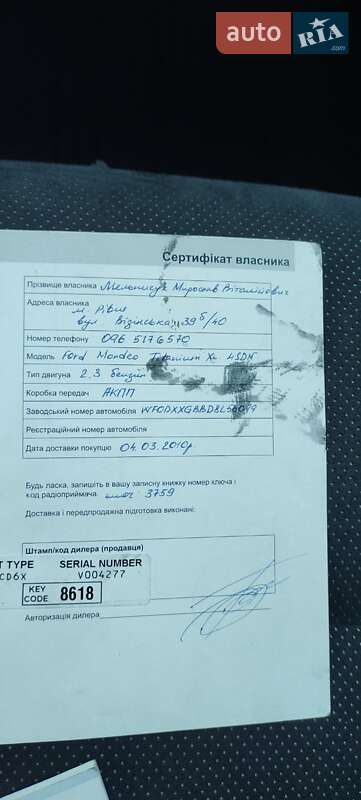 auto RIA.com
Сертифікат власника
Прізвище власника Мирослав Віталійович
Адреса власника
м. Рівне
вул. 39б/40
Номер телефону 096 5176570
Модель Ford Mondeo Titanium X 4SDN
Тип двигуна 2.3 бензин
Коробка передач АКПП
Заводський номер автомобіля
Реєстраційний номер автомобіля
Дата доставки покупцю 04.03.2010р.
Будь ласка, запишіть в вашу записну книжку номер ключа і
код радіоприймача. 3759
Доставка і передпродажна підготовка виконані:
Штамп/код дилера (продавця)
T TYPE SERIAL NUMBER
CD6X V004277
KEY CODE 8618
Авторизація дилера